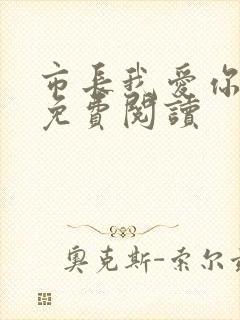 市長我愛你
免費閱讀
奧克斯-索尔